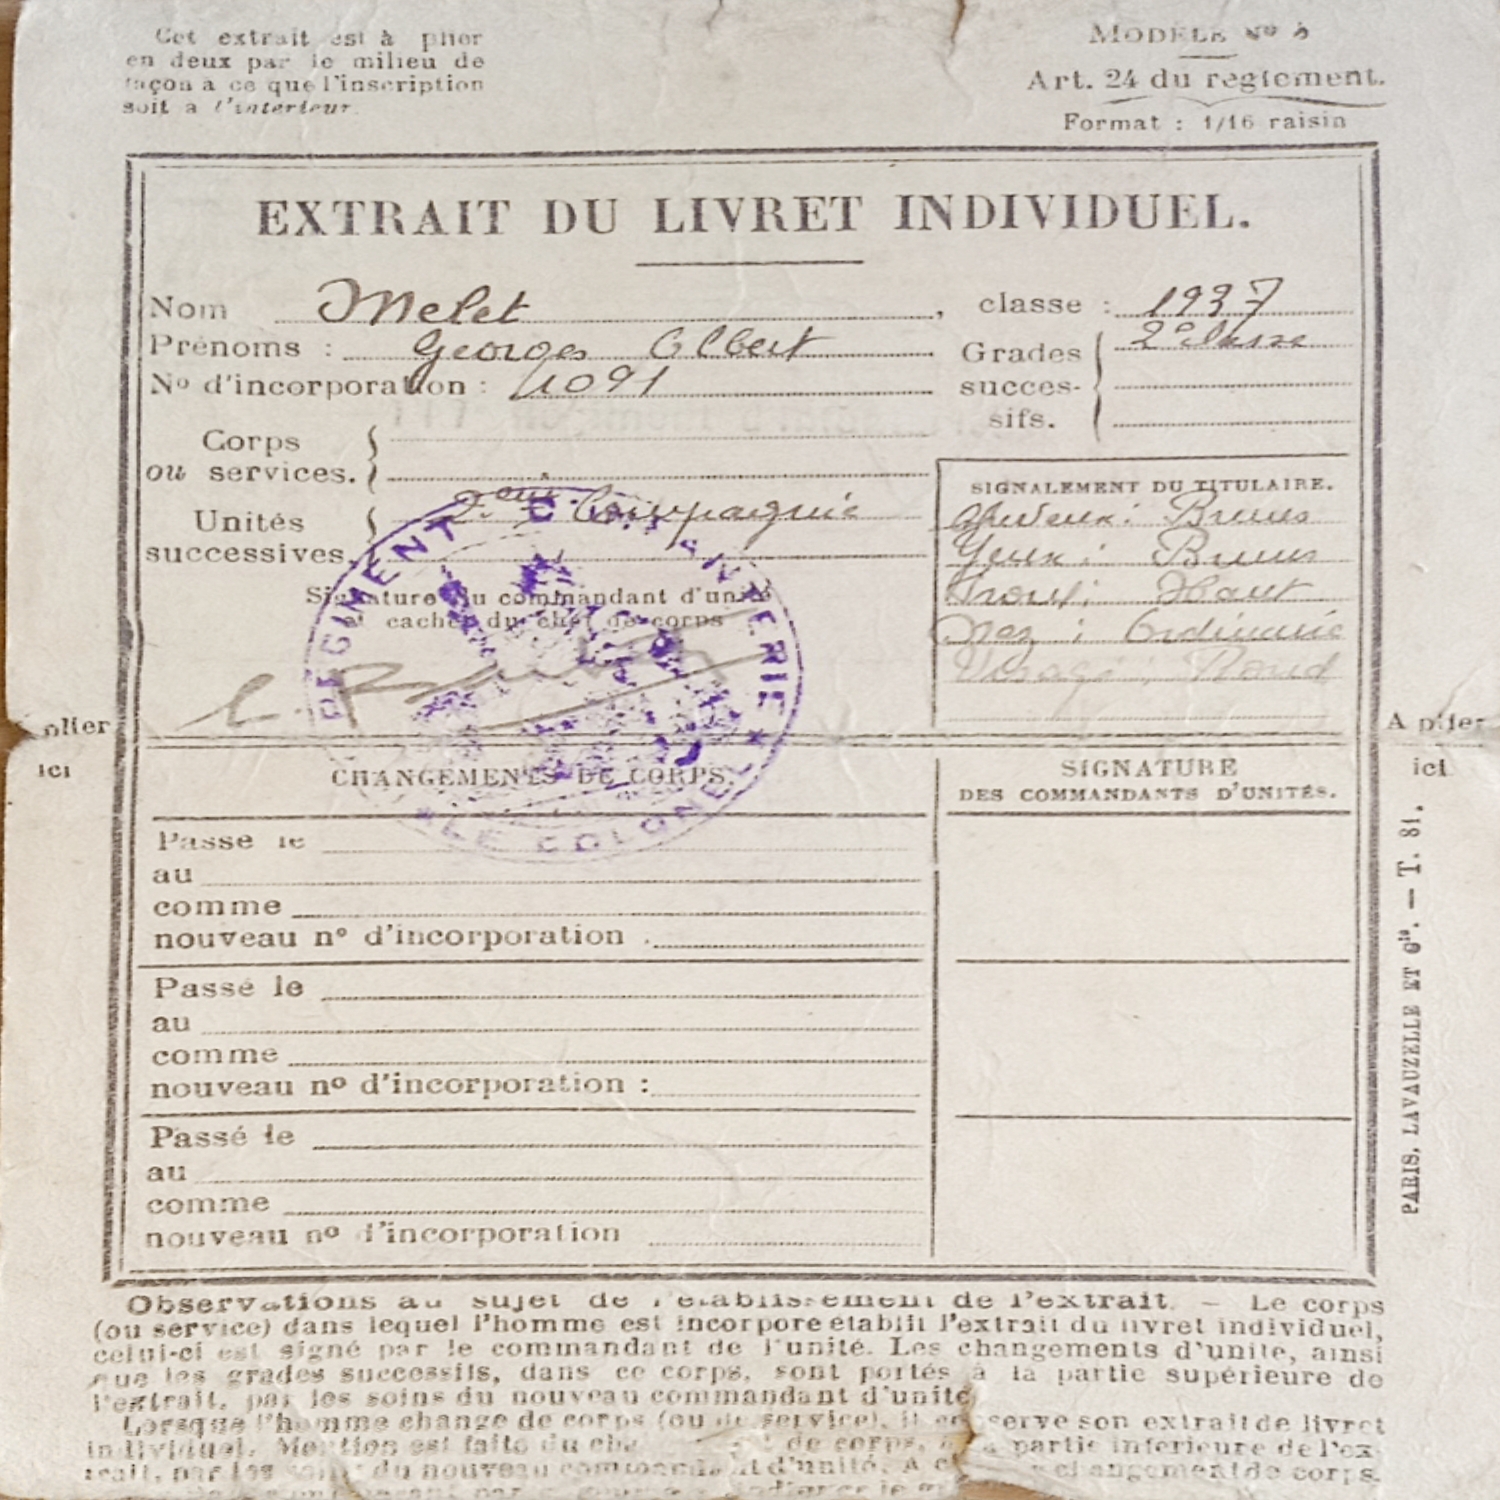 Cet extrait est à plier
en deux par le milieu de
façon à ce que l'inscription
soit à l'intérieur.
MODÈLE Nº
Art. 24 du règlement.
Format : 1/16 raisin
EXTRAIT DU LIVRET INDIVIDUEL.
Nom Melet, classe : 1937
Prénoms : Georges Albert
Grades succes- sifs. 2e classe
Nº d'incorporation : 1091
Corps
ou services.
Unités
successives.
2ème Compagnie
SIGNALEMENT DU TITULAIRE.
Cheveux : Bruns
Yeux : Bruns
Front : Haut
Nez : Ordinaire
Visage : Rond
Signature du commandant d'unité
et cachet du chef de corps
RÉGIMENT D'INFANTERIE
LE COLONEL
plier
ici
A plier
ici
CHANGEMENTS DE CORPS.
SIGNATURE
DES COMMANDANTS D'UNITÉS.
Passé le
au
comme
nouveau nº d'incorporation
Passé le
au
comme
nouveau nº d'incorporation :
Passé le
au
comme
nouveau nº d'incorporation
PARIS, LAVAUZELLE ET Cie. — T. 81.
Observations au sujet de l'établissement de l'extrait. — Le corps
(ou service) dans lequel l'homme est incorporé établit l'extrait du livret individuel,
celui-ci est signé par le commandant de l'unité. Les changements d'unité, ainsi
que les grades successifs, dans ce corps, sont portés à la partie supérieure de
l'extrait, par les soins du nouveau commandant d'unité.
Lorsque l'homme change de corps (ou de service), il conserve son extrait de livret
individuel. Mention est faite du de corps, à la partie inférieure de l'ex-
trait, par les soins du nouveau commandant d'unité. A changement de corps.